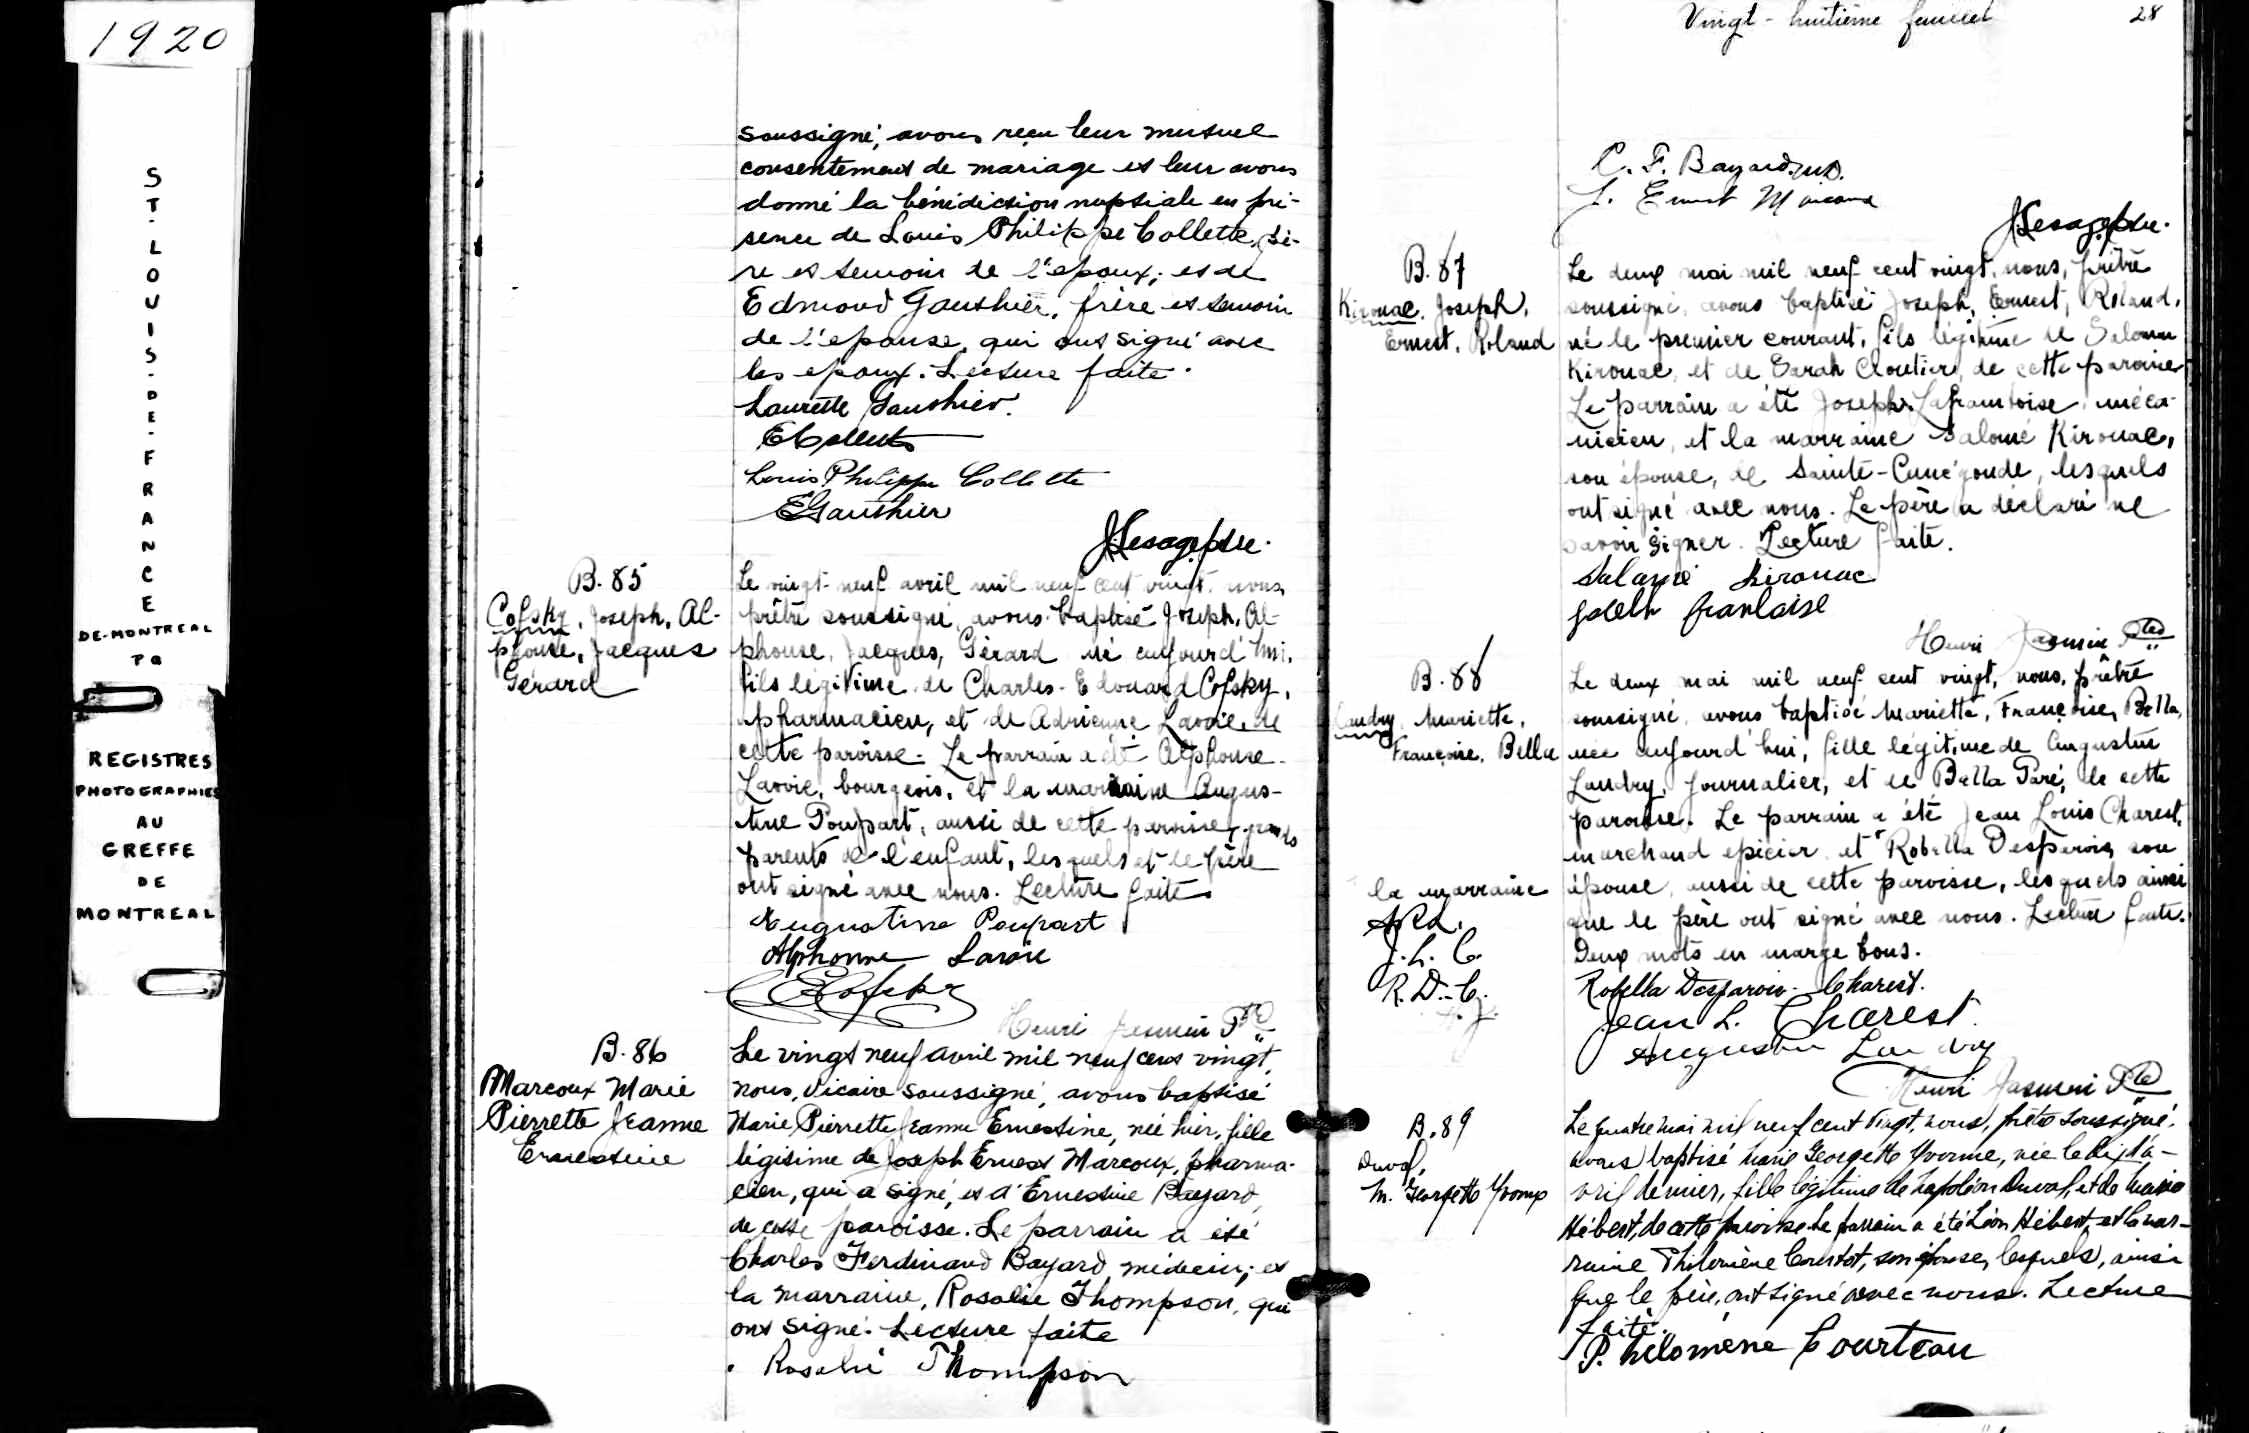 1920
ST-LOUIS-DE-FRANCE
DE-MONTREAL
PQ
REGISTRES
PHOTOGRAPHIES
AU
GREFFE
DE
MONTREAL
soussigné, avons reçu leur mutuel
consentement de mariage et leur avons
donné la bénédiction nuptiale en pré-
sence de Louis Philippe Collette, pè-
re et temoin de l'epoux; et de
Edmond Gauthier, frère et temoin
de l'epouse, qui ont signé avec
les epoux. Lecture faite.
Laurette Gauthier.
E Collette
Louis Philippe Collette
E Gauthier
J Lesage ptre.
B. 85
Cofsky, Joseph, Al-
phonse, Jacques
Gérard
Le vingt-neuf avril mil neuf cent vingt, nous,
prêtre soussigné, avons baptisé Joseph, Al-
phonse, Jacques, Gérard né aujourd'hui,
fils légitime de Charles-Edouard Cofsky,
pharmacien, et de Adrienne Lavoie de
cette paroisse. Le parrain a été Alphonse
Lavoie, bourgeois, et la marraine Augus-
tine Poupart, aussi de cette paroisse, grands
parents de l'enfant, lesquels et le père
ont signé avec nous. Lecture faite.
Augustine Poupart
Alphonse Lavoie
C E Cofsky
Henri Jasmin Ptre
B. 86
Marcoux Marie
Pierrette Jeanne
Ernestine
Le vingt neuf avril mil neuf cent vingt,
nous, vicaire soussigné, avons baptisé
Marie Pierrette Jeanne Ernestine, née hier, fille
légitime de Joseph Ernest Marcoux, pharma-
cien, qui a signé, et d'Ernestine Bayard,
de cette paroisse. Le parrain a été
Charles Ferdinand Bayard médecin; et
la marraine, Rosalie Thompson, qui
ont signé. Lecture faite
Rosalie Thompson
Vingt-huitième feuillet 28
C. F. Bayard M.D.
J. Ernest Marcoux
J Lesage ptre.
B. 87
Kirouac, Joseph,
Ernest, Roland
Le deux mai mil neuf cent vingt, nous, prêtre
soussigné, avons baptisé Joseph, Ernest, Roland,
né le premier courant, fils légitime de Salomon
Kirouac, et de Sarah Cloutier, de cette paroisse
Le parrain a été Joseph Laframboise, méca-
nicien, et la marraine Salomé Kirouac,
son épouse, de Sainte-Cunégonde, lesquels
ont signé avec nous. Le père a déclaré ne
savoir signer. Lecture faite.
Salomé Kirouac
Henri Jasmin Ptre
B. 88
Landry, Mariette,
Françoise, Bella
Le deux mai mil neuf cent vingt, nous, prêtre
soussigné, avons baptisé Mariette, Françoise, Bella,
née aujourd'hui, fille légitime de Augustin
Landry, journalier, et de Bella Paré, de cette
paroisse. Le parrain a été Jean Louis Charest,
marchand epicier et Robella Desparois son
épouse, aussi de cette paroisse, lesquels ainsi
que le père ont signé avec nous. Lecture faite.
Deux mots en marge bons.
la marraine
J. L. C.
R. D.-C.
H. J.
Robella Desparois-Charest.
Jean L. Charest.
Augustin Landry
Henri Jasmin Ptre
B. 89
Duval,
M. Georgette Yvonne
Le quatre mai mil neuf cent vingt, nous, prêtre soussigné,
avons baptisé Marie Georgette Yvonne, née le dix d'a-
vril dernier, fille légitime de Napoléon Duval, et de Maria
Hébert, de cette paroisse. Le parrain a été Léon Hébert, et la mar-
raine Philomène Courtot, son épouse, lesquels, ainsi
que le père, ont signé avec nous. Lecture
faite.
P. hilomène Courteau